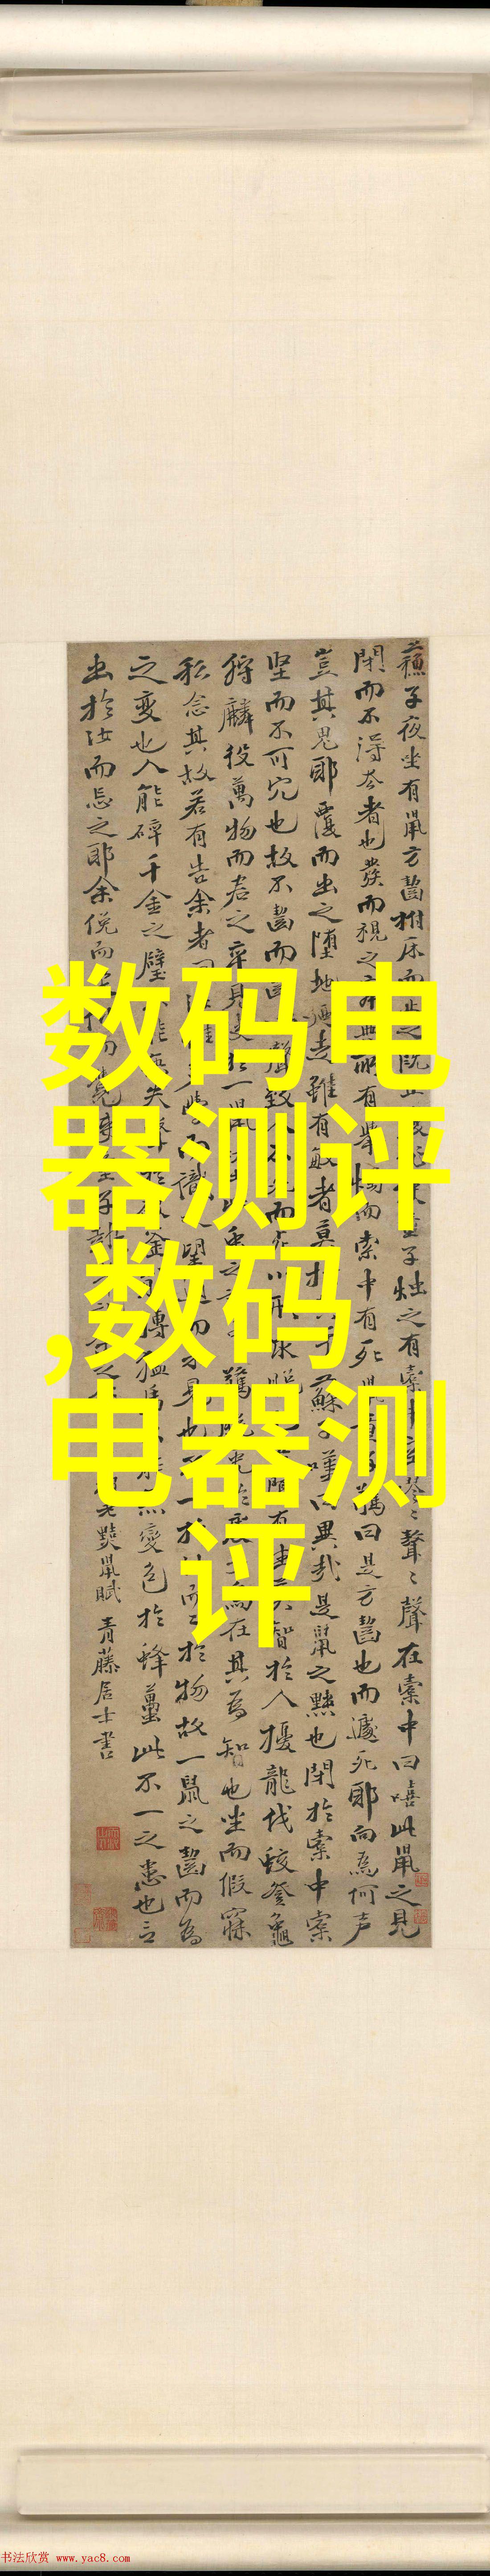 蘓子夜坐有鼠方齧拊床而止之既止童子燭之有橐中聲聲在橐中曰嘻此鼠之見
閉而不得去者也發而視之有舉燭而索中有死驚曰是方齧也而遽死耶向為何声
豈其鬼耶覆而出之墮地迺走雖有敏者莫手蘇子嘆曰異哉是鼠之黠也閉於橐中橐
堅而不可穴也故不齧而聲致人而形求脫聞有生莫智於人擾龍伐蛟登龜
狩麟役萬物而君之卒見使於一鼠此蟲之驚脫兔於處在其為知也坐而假寐
私念其故若有告余者曰學而識望而未見也一於汝而二於物故一鼠之齧而為
之變也人能碎千金之璧能無失聲於釜搏猛虎不能無變色於蜂蠆此不一之患也言
出於汝而忘之耶余俛而仰而覺使童子黠鼠賦 青藤居士書
数码电
器测评
,数码
电器测
评
书法欣赏 www.yac8.com